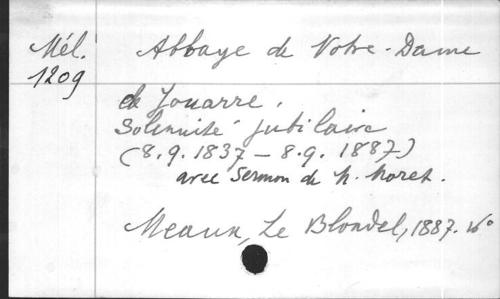 Mél. Abbaye de Notre-Dame
1209
de Jouarre.
Solennité jubilaire
(8.9.1837 – 8.9.1887)
avec sermon de M. Moret.
Meaux, Le Blondel, 1887. 16°